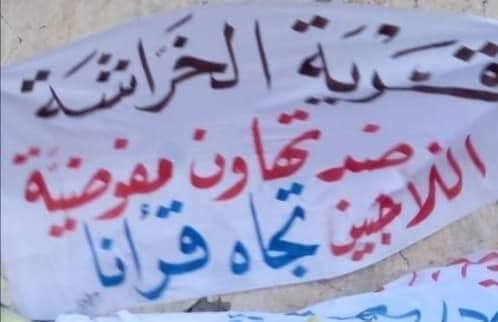 قَرْيَة الخَرَّاشَة
ضد تهاون مفوضيَّة
اللاجئين تجاه قرأنا